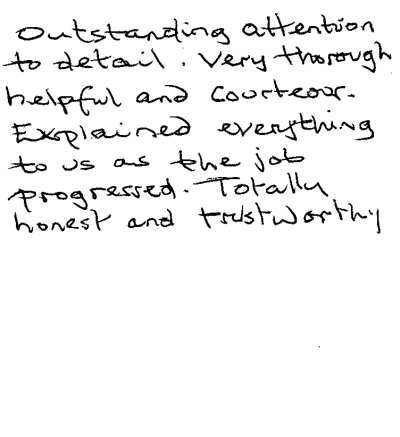 Outstanding attention
to detail. Very thorough
helpful and courteous.
Explained everything
to us as the job
progressed. Totally
honest and trustworthy